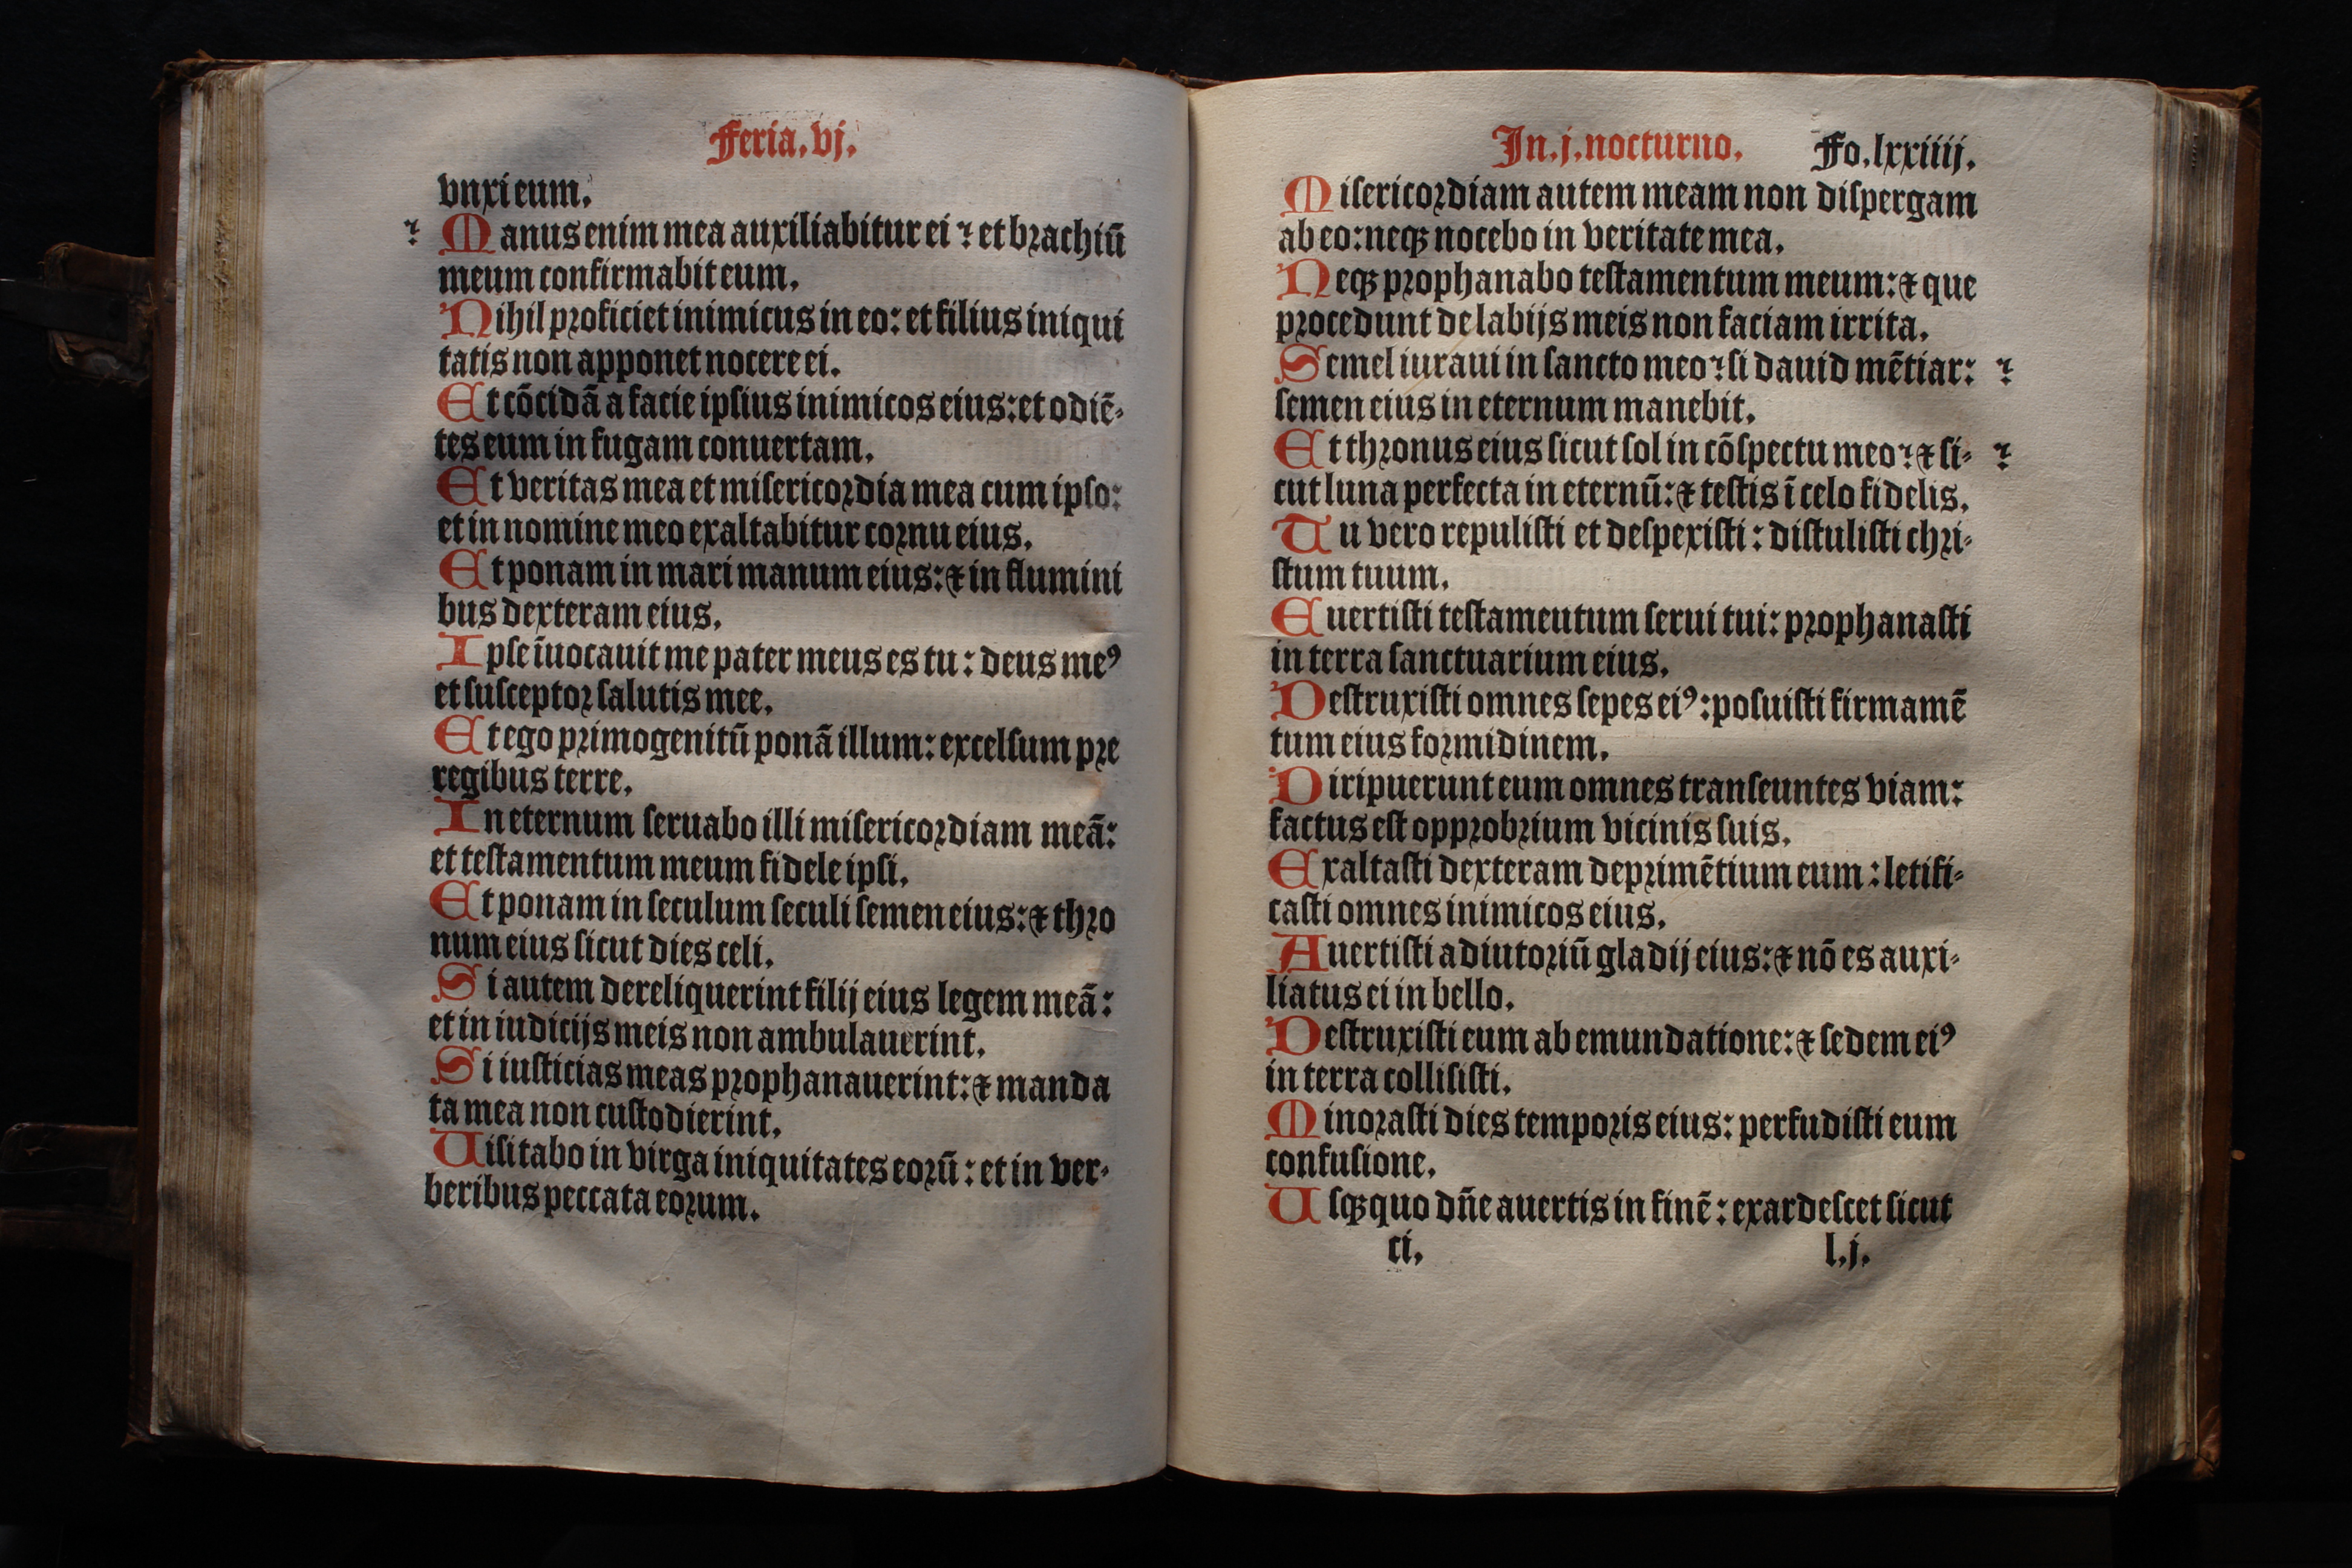 Feria.vj.
vnxi eum.
⁊ Manus enim mea auxiliabitur ei ⁊ et brachiū
meum confirmabit eum.
Nihil proficiet inimicus in eo: et filius iniqui
tatis non apponet nocere ei.
Et cōcidā a facie ipsius inimicos eius: et odiē-
tes eum in fugam conuertam.
Et veritas mea et misericordia mea cum ipso:
et in nomine meo exaltabitur cornu eius.
Et ponam in mari manum eius: ⁊ in flumini
bus dexteram eius.
Ipse īuocauit me pater meus es tu: deus meꝰ
et susceptor salutis mee.
Et ego primogenitū ponā illum: excelsum pre
regibus terre.
In eternum seruabo illi misericordiam meā:
et testamentum meum fidele ipsi.
Et ponam in seculum seculi semen eius: ⁊ thro
num eius sicut dies celi.
Si autem dereliquerint filij eius legem meā:
et in iudicijs meis non ambulauerint.
Si iusticias meas prophanauerint: ⁊ manda
ta mea non custodierint.
Uisitabo in virga iniquitates eorū: et in ver-
beribus peccata eorum.
In.j.nocturno. Fo.lxxiiij.
Misericordiam autem meam non dispergam
ab eo: neqꝫ nocebo in veritate mea.
Neqꝫ prophanabo testamentum meum: ⁊ que
procedunt de labijs meis non faciam irrita.
Semel iuraui in sancto meo ⁊ si dauid mētiar: ⁊
semen eius in eternum manebit.
Et thronus eius sicut sol in cōspectu meo ⁊ ⁊ si- ⁊
cut luna perfecta in eternū: ⁊ testis ī celo fidelis.
Tu vero repulisti et despexisti: distulisti chri-
stum tuum.
Euertisti testameutum serui tui: prophanasti
in terra sanctuarium eius.
Destruxisti omnes sepes eiꝰ: posuisti firmamē
tum eius formidinem.
Diripuerunt eum omnes transeuntes viam:
factus est opprobrium vicinis suis.
Exaltasti dexteram deprimētium eum: letifi-
casti omnes inimicos eius.
Auertisti adiutoriū gladij eius: ⁊ nō es auxi-
liatus ei in bello.
Destruxisti eum ab emundatione: ⁊ sedem eiꝰ
in terra collisisti.
Minorasti dies temporis eius: perfudisti eum
confusione.
Usqꝫquo dn̄e auertis in finē: exardescet sicut
ci. l.j.